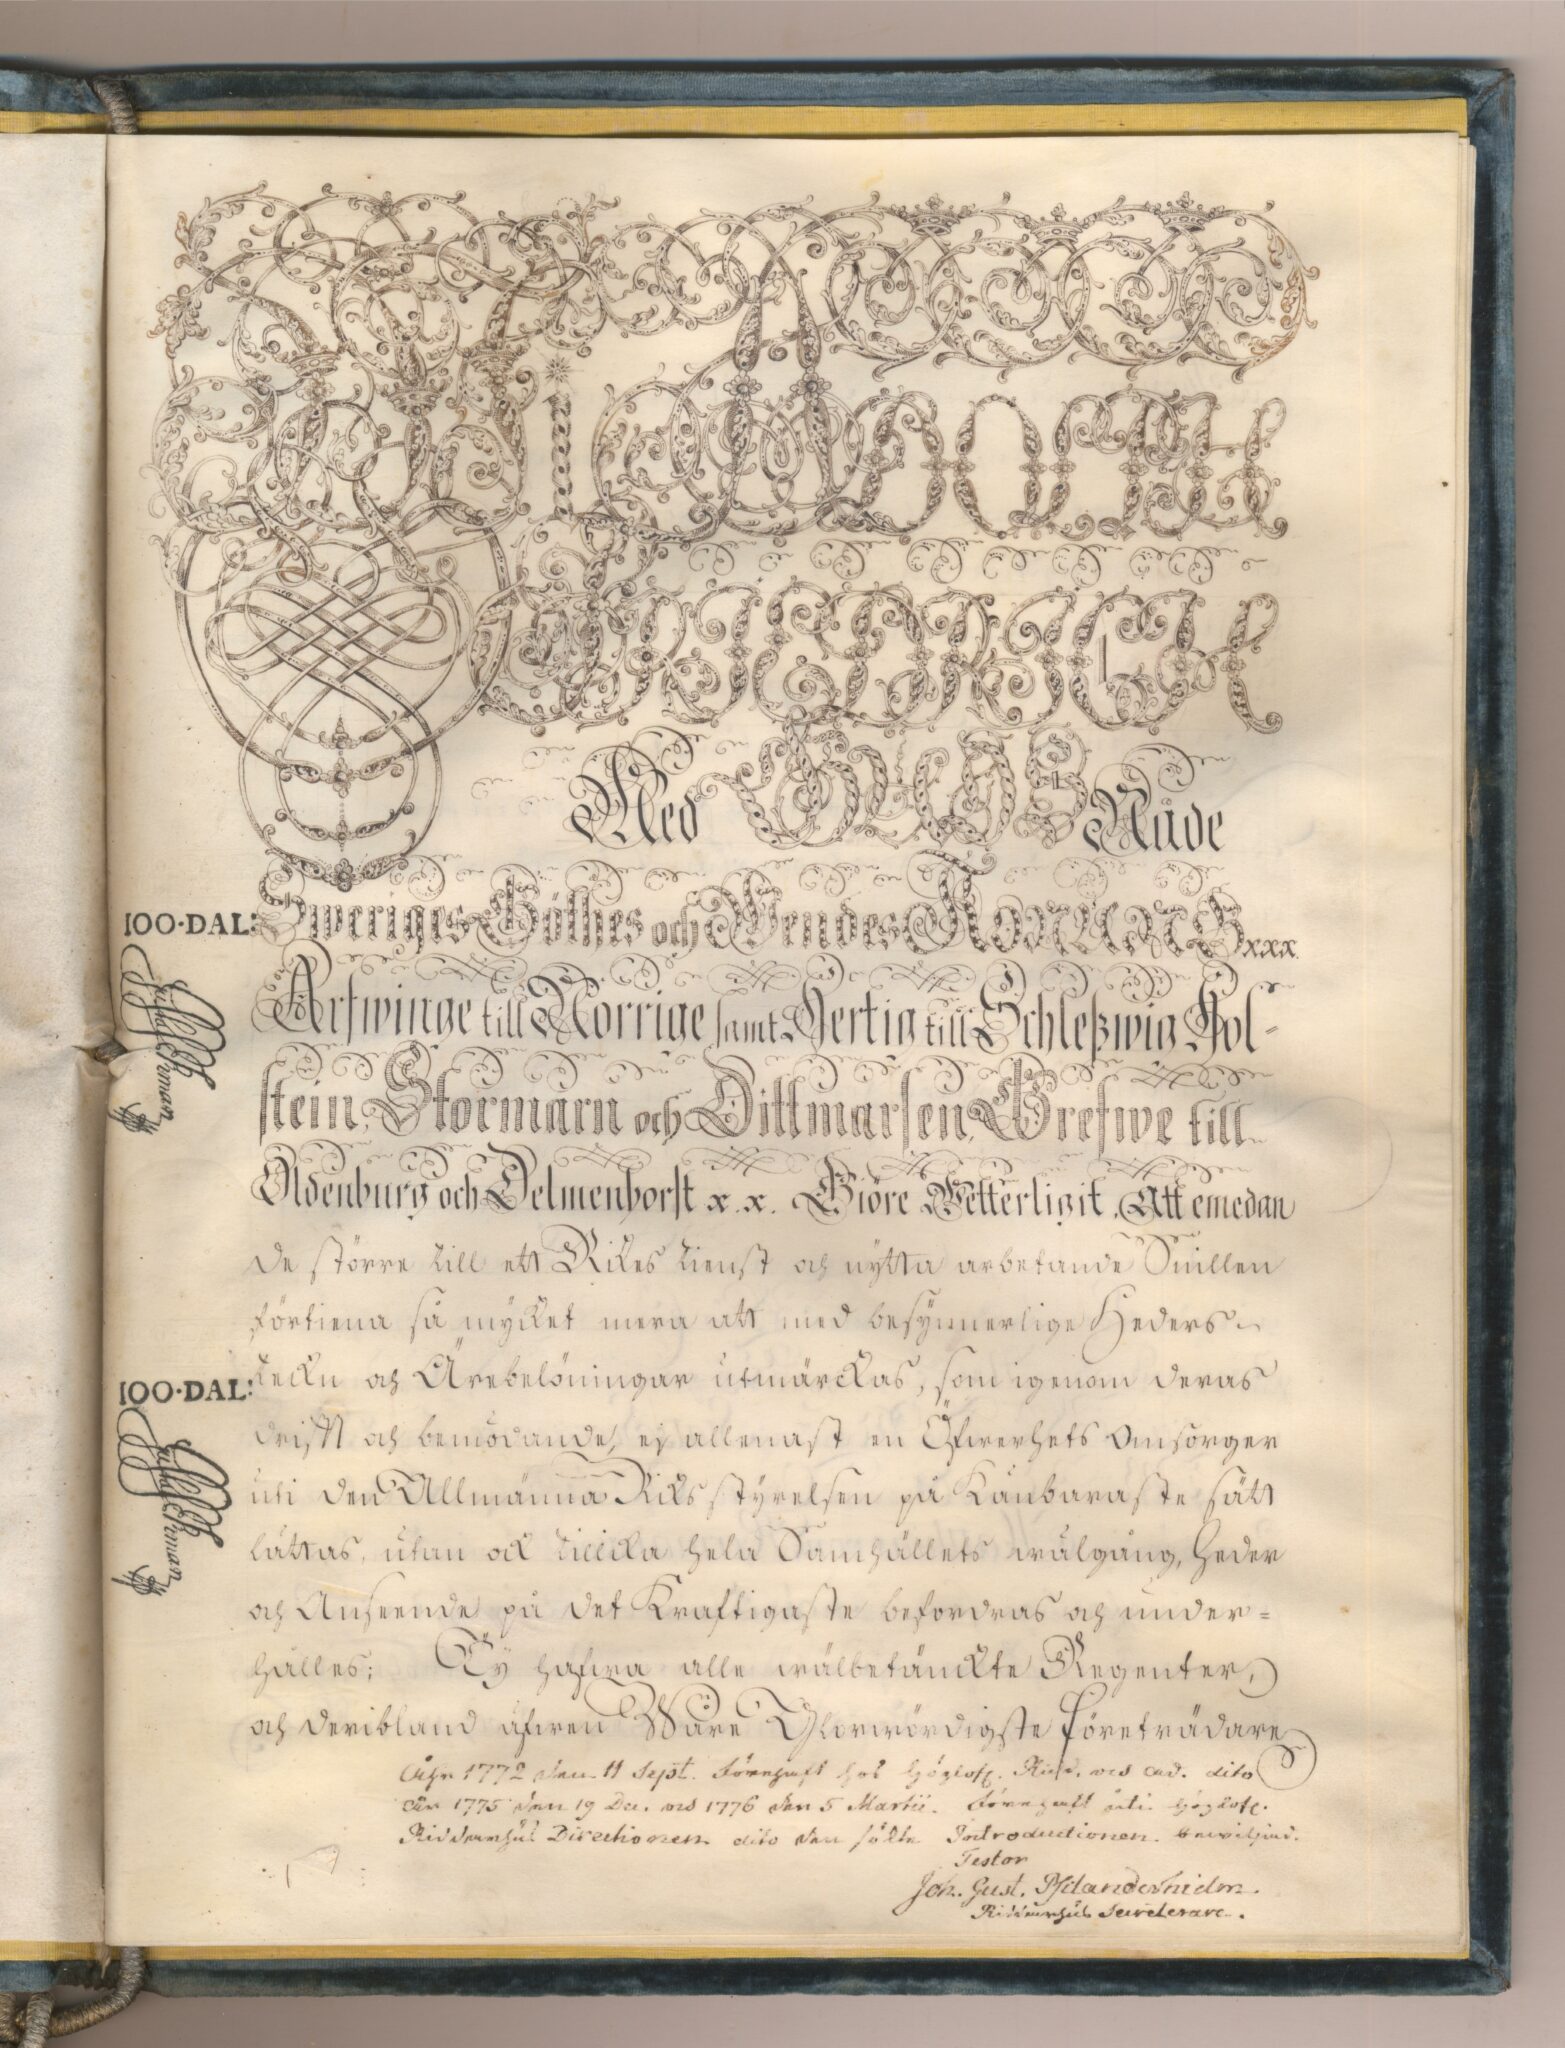 Wi ADOLPH
FRIEDRICH
Med GUDS Nåde
Sweriges Göthes och Wendes KONUNG xxx.
100·DAL:
Arfwinge till Norrige samt Hertig till Schleßwig Hol-
stein, Stormarn och Dittmarsen, Grefwe till
Oldenburg och Delmenhorst x. x. Giöre Wetterligit, Att emedan
de större till ett Rikes tienst och nytta arbetande Snillen
förtiena så mycket mera att med besynnerlige Heders
teckn och Ärebelöningar utmärckas, som igenom deras
100·DAL:
drift och bemödande, ej allenast en Öfwerhets Omsorger
uti den Allmänna Riksstyrelsen på Kånbaraste sätt
lättas, utan ock tillika hela Samhällets wälgång, Heder
och Anseende på det Kraftigaste befordras och under=
hålles; Ty hafwa alle wälbetänckte Regenter,
och deribland äfwen Wåre Glorwördigste Företrädare
År 1772 den 11 Sept. hos
år 1775 den 19 Dec. 1776 den 5 Martii.
Riddarhus Directionen dito den Introductionen
Testor
Joh. Gust. Psilanderhielm.
Riddarhus Secreterare.